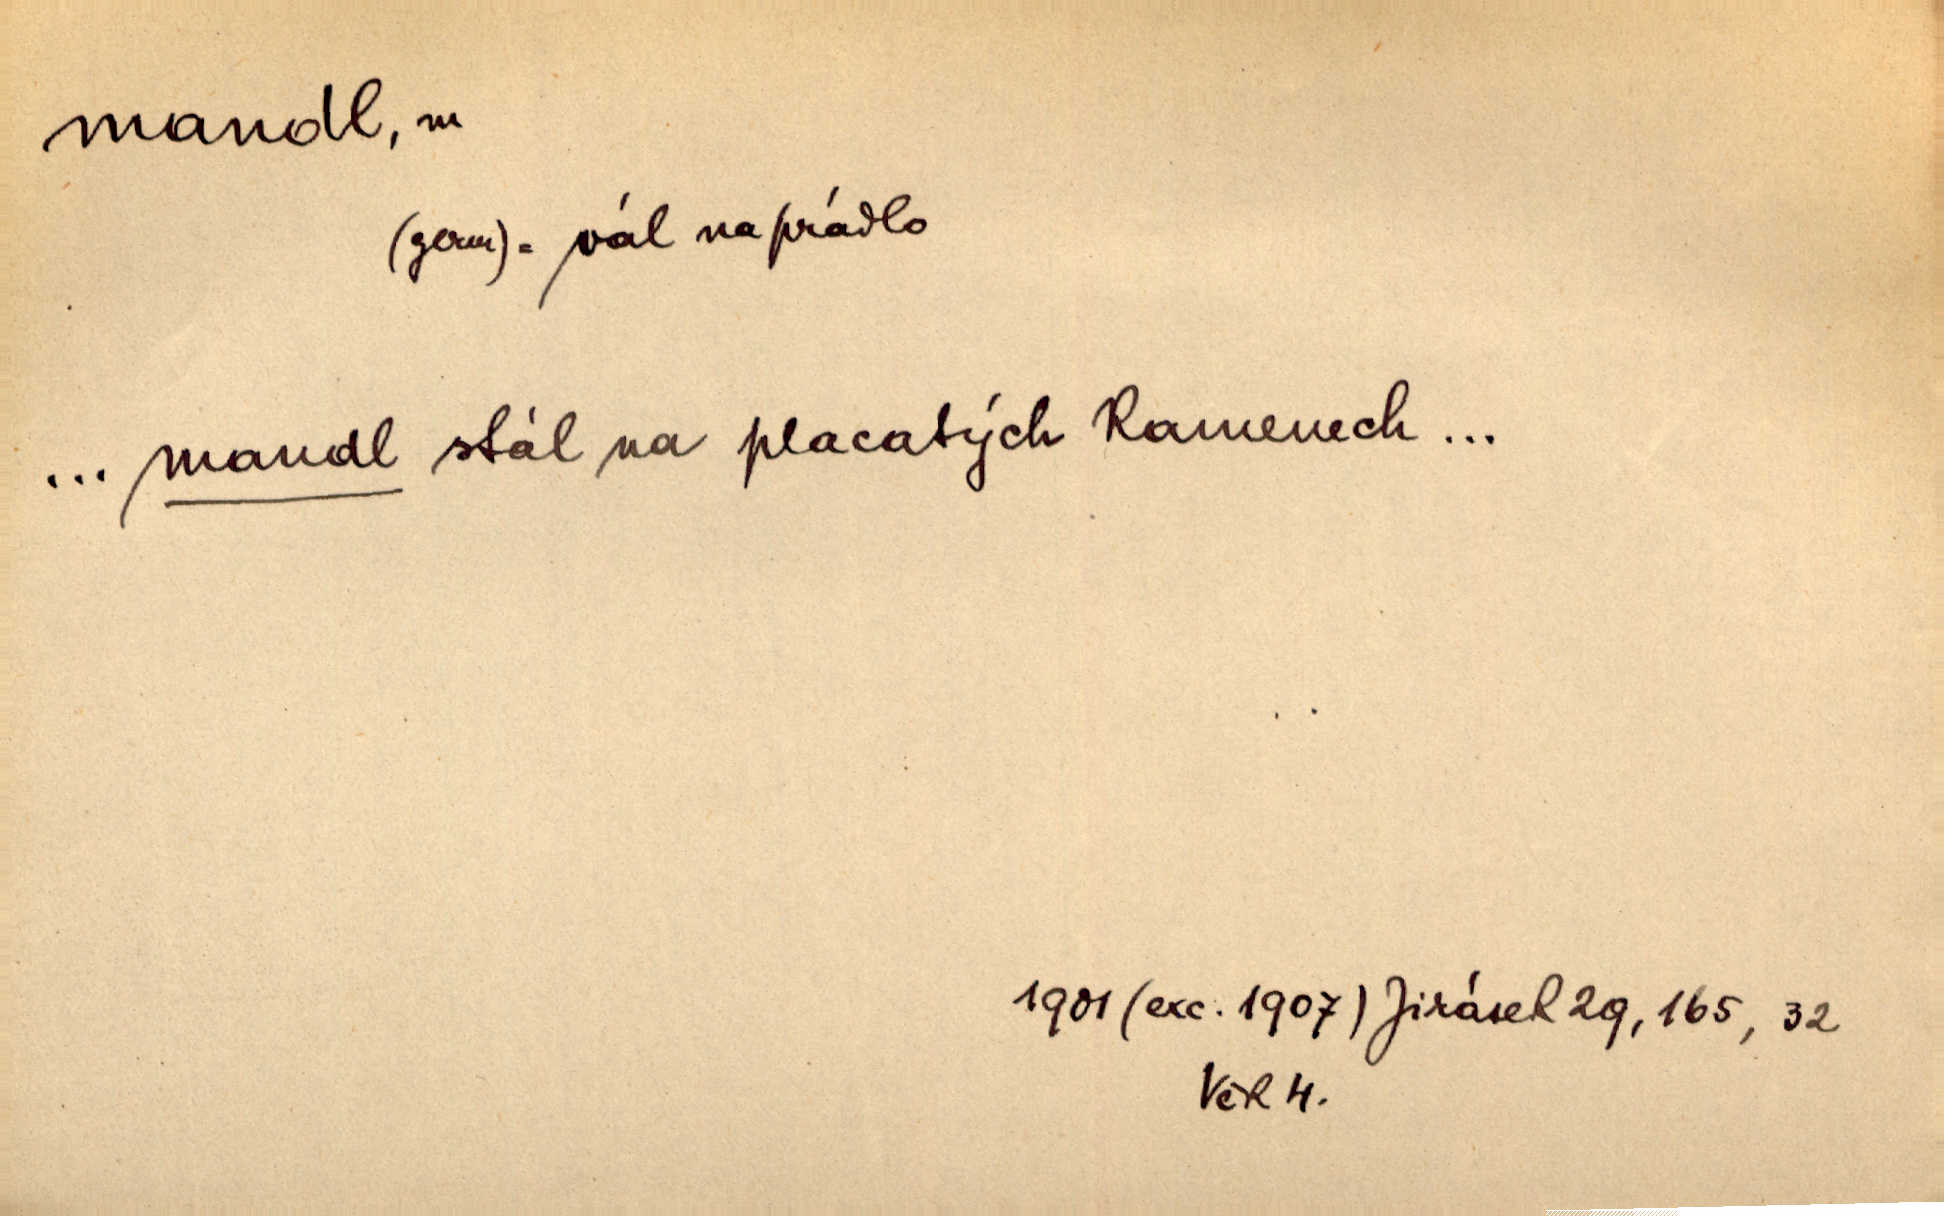 mandl, m
(germ) = vál na prádlo
... mandl stál na placatých kamenech ...
1901 (exc. 1907) Jirásek 29, 165, 32
Věk 4.